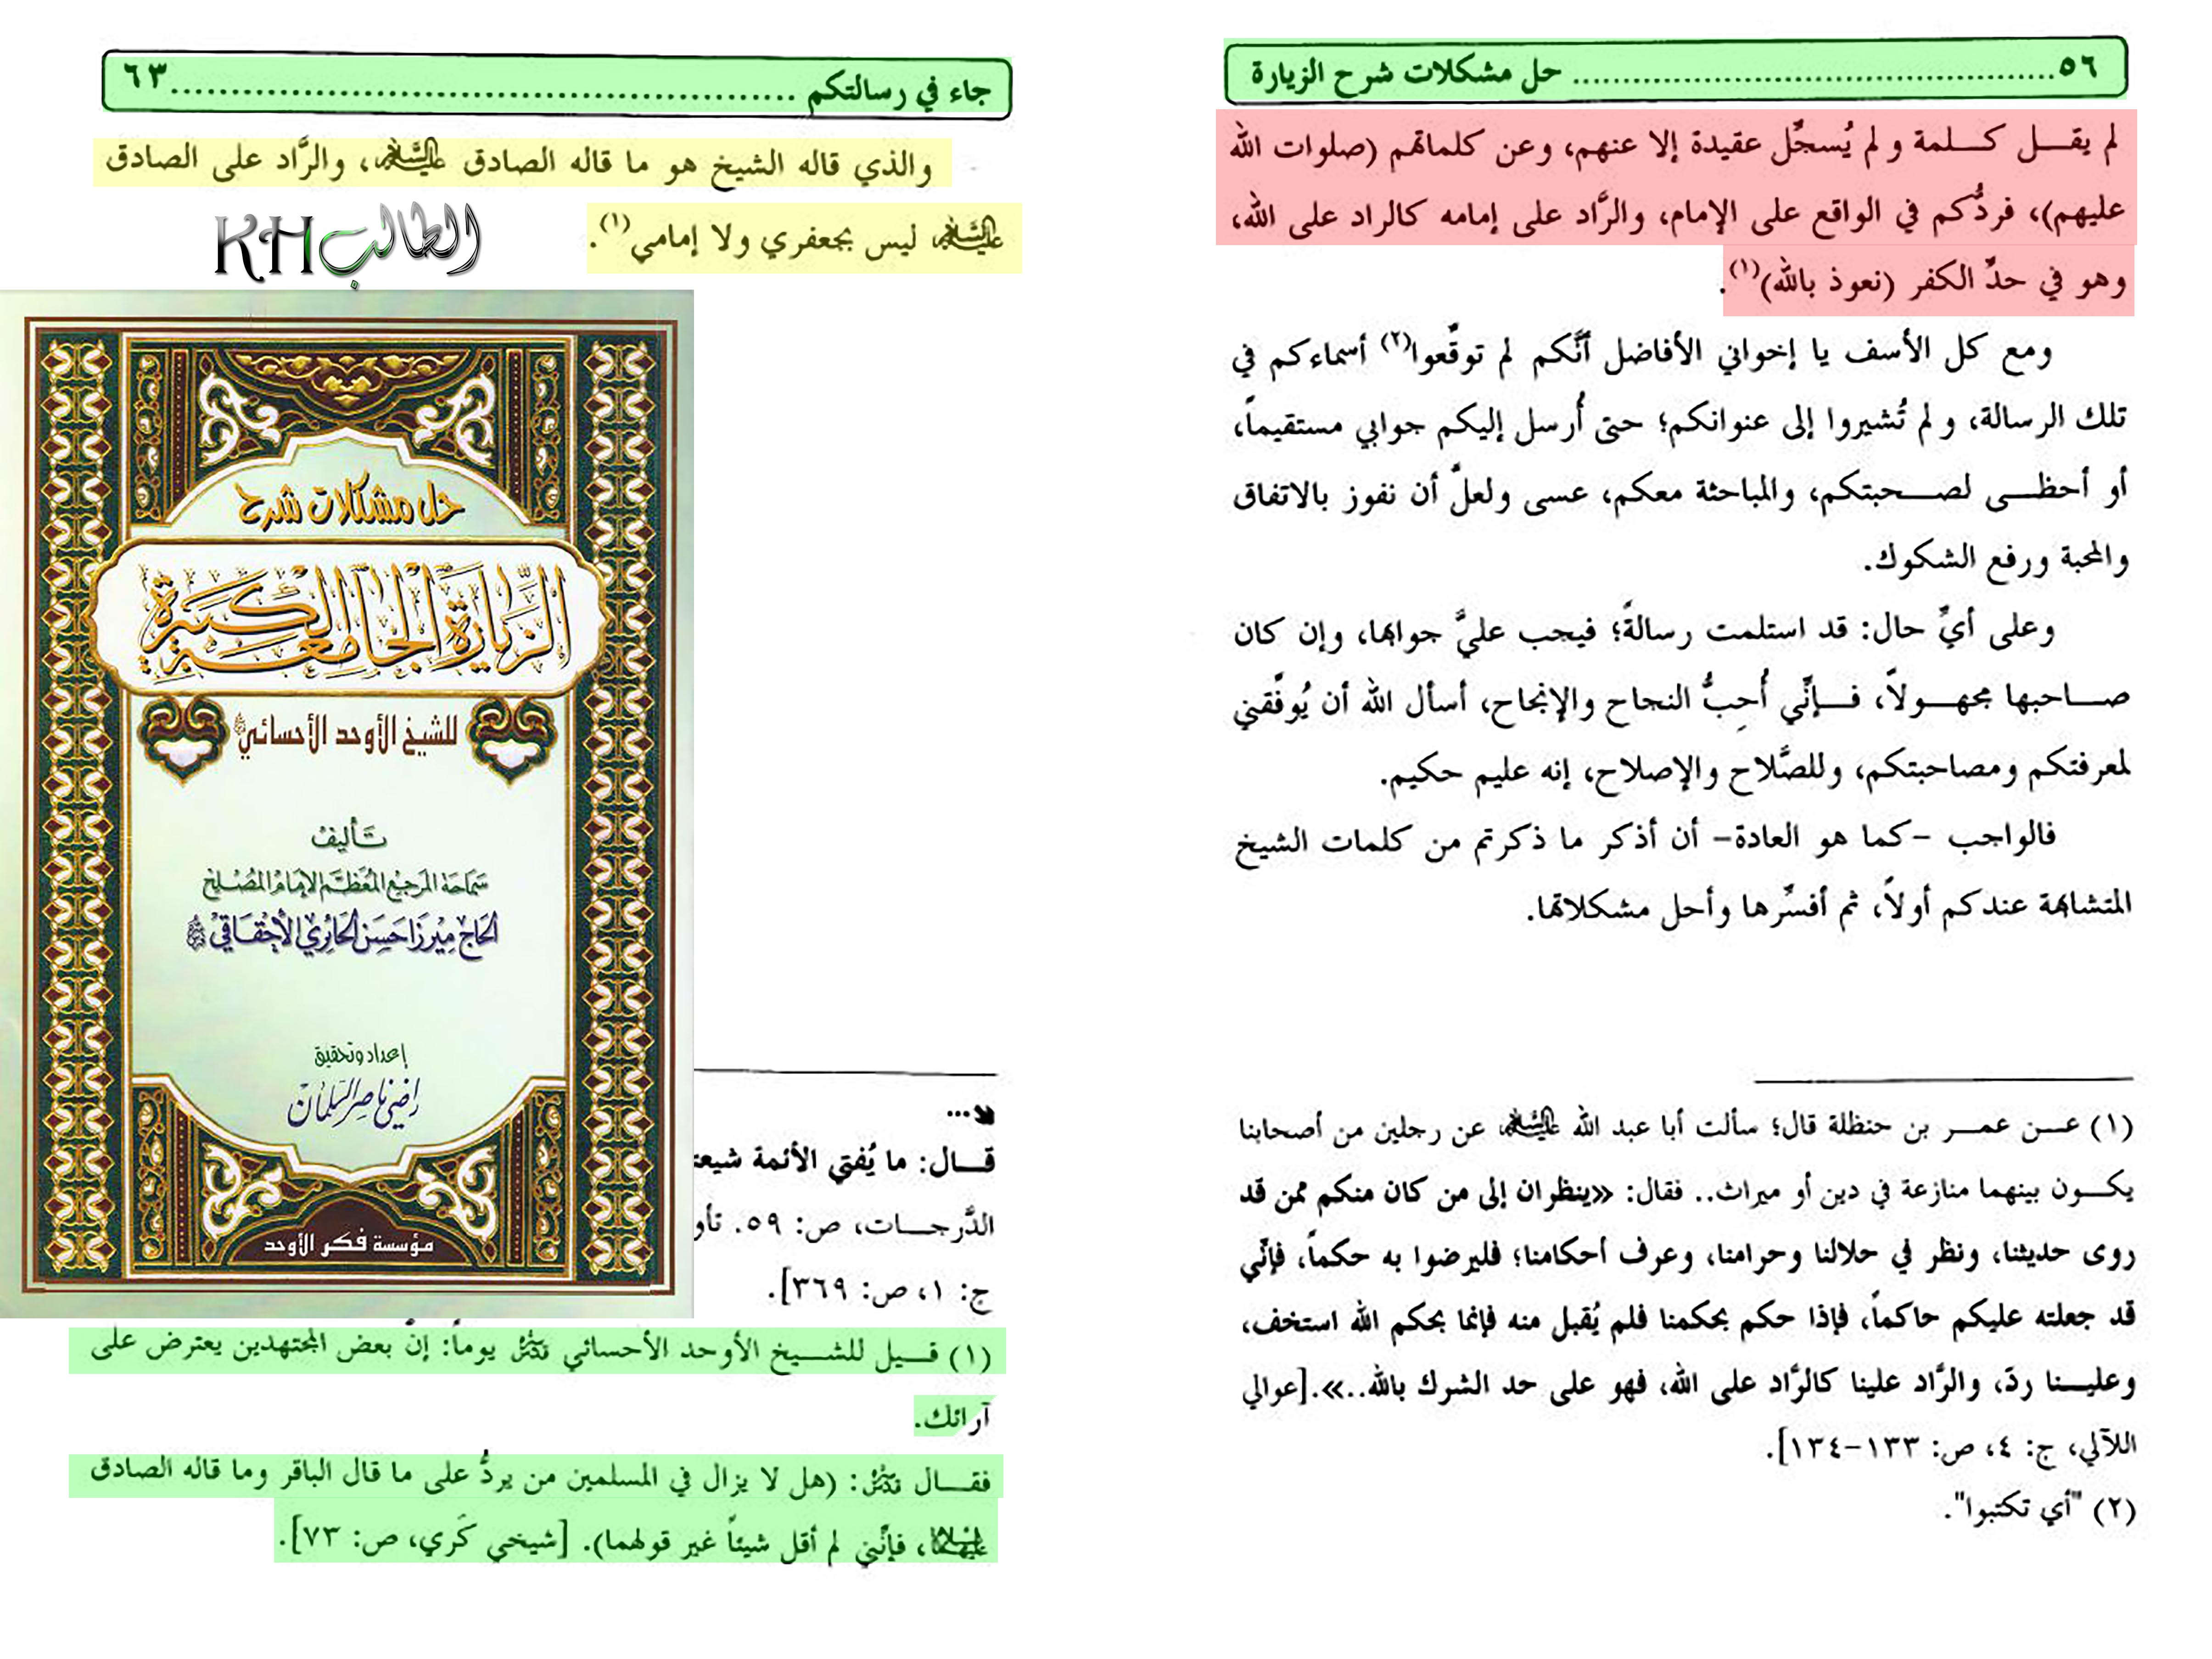 ٥٦ ........ حل مشكلات شرح الزيارة
لم يقل كلمة ولم يُسجِّل عقيدة إلا عنهم، وعن كلماتهم (صلوات الله
عليهم)، فردُّكم في الواقع على الإمام، والرَّاد على إمامه كالراد على الله،
وهو في حدِّ الكفر (نعوذ بالله)(١).
ومع كل الأسف يا إخواني الأفاضل أنَّكم لم توقِّعوا(٢) أسماءكم في
تلك الرسالة، ولم تُشيروا إلى عنوانكم؛ حتى أُرسل إليكم جوابي مستقيماً،
أو أحظى لصحبتكم، والمباحثة معكم، عسى ولعلَّ أن نفوز بالاتفاق
والمحبة ورفع الشكوك.
وعلى أيِّ حال: قد استلمت رسالةً؛ فيجب عليَّ جوابها، وإن كان
صاحبها مجهولاً، فإنِّي أُحِبُّ النجاح والإنجاح، أسأل الله أن يُوفِّقني
لمعرفتكم ومصاحبتكم، وللصَّلاح والإصلاح، إنه عليم حكيم.
فالواجب -كما هو العادة- أن أذكر ما ذكرتم من كلمات الشيخ
المتشابهة عندكم أولاً، ثم أفسِّرها وأحل مشكلاتها.
(١) عن عمر بن حنظلة قال؛ سألت أبا عبد الله عليه السلام عن رجلين من أصحابنا
يكون بينهما منازعة في دين أو ميراث.. فقال: «ينظران إلى من كان منكم ممن قد
روى حديثنا، ونظر في حلالنا وحرامنا، وعرف أحكامنا؛ فليرضوا به حكماً، فإنّي
قد جعلته عليكم حاكماً، فإذا حكم بحكمنا فلم يُقبل منه فإنما بحكم الله استخف،
وعلينا ردّ، والرَّاد علينا كالرَّاد على الله، فهو على حد الشرك بالله..».[عوالي
اللآلي، ج: ٤، ص: ١٣٣-١٣٤].
(٢) "أي تكتبوا".
جاء في رسالتكم ........ ٦٣
والذي قاله الشيخ هو ما قاله الصادق عليه السلام، والرَّاد على الصادق
عليه السلام ليس بجعفري ولا إمامي(١).
الطالب KH
حل مشكلات شرح
الزيارة الجامعة الكبيرة
للشيخ الأوحد الأحسائي
تأليف
سماحة المرجع المعظم الإمام المصلح
الحاج ميرزا حسن الحائري الإحقاقي
إعداد وتحقيق
راضي ناصر السلمان
مؤسسة فكر الأوحد
...
قال: ما يُفتي الأئمة
الدَّرجات، ص: ٥٩.
ج: ١، ص: ٣٦٩].
(١) قيل للشيخ الأوحد الأحسائي قدس سره يوماً: إنّ بعض المجتهدين يعترض على
آرائك.
فقال قدس سره: (هل لا يزال في المسلمين من يردُّ على ما قال الباقر وما قاله الصادق
عليهما السلام، فإنّني لم أقل شيئاً غير قولهما). [شيخي گري، ص: ٧٣].